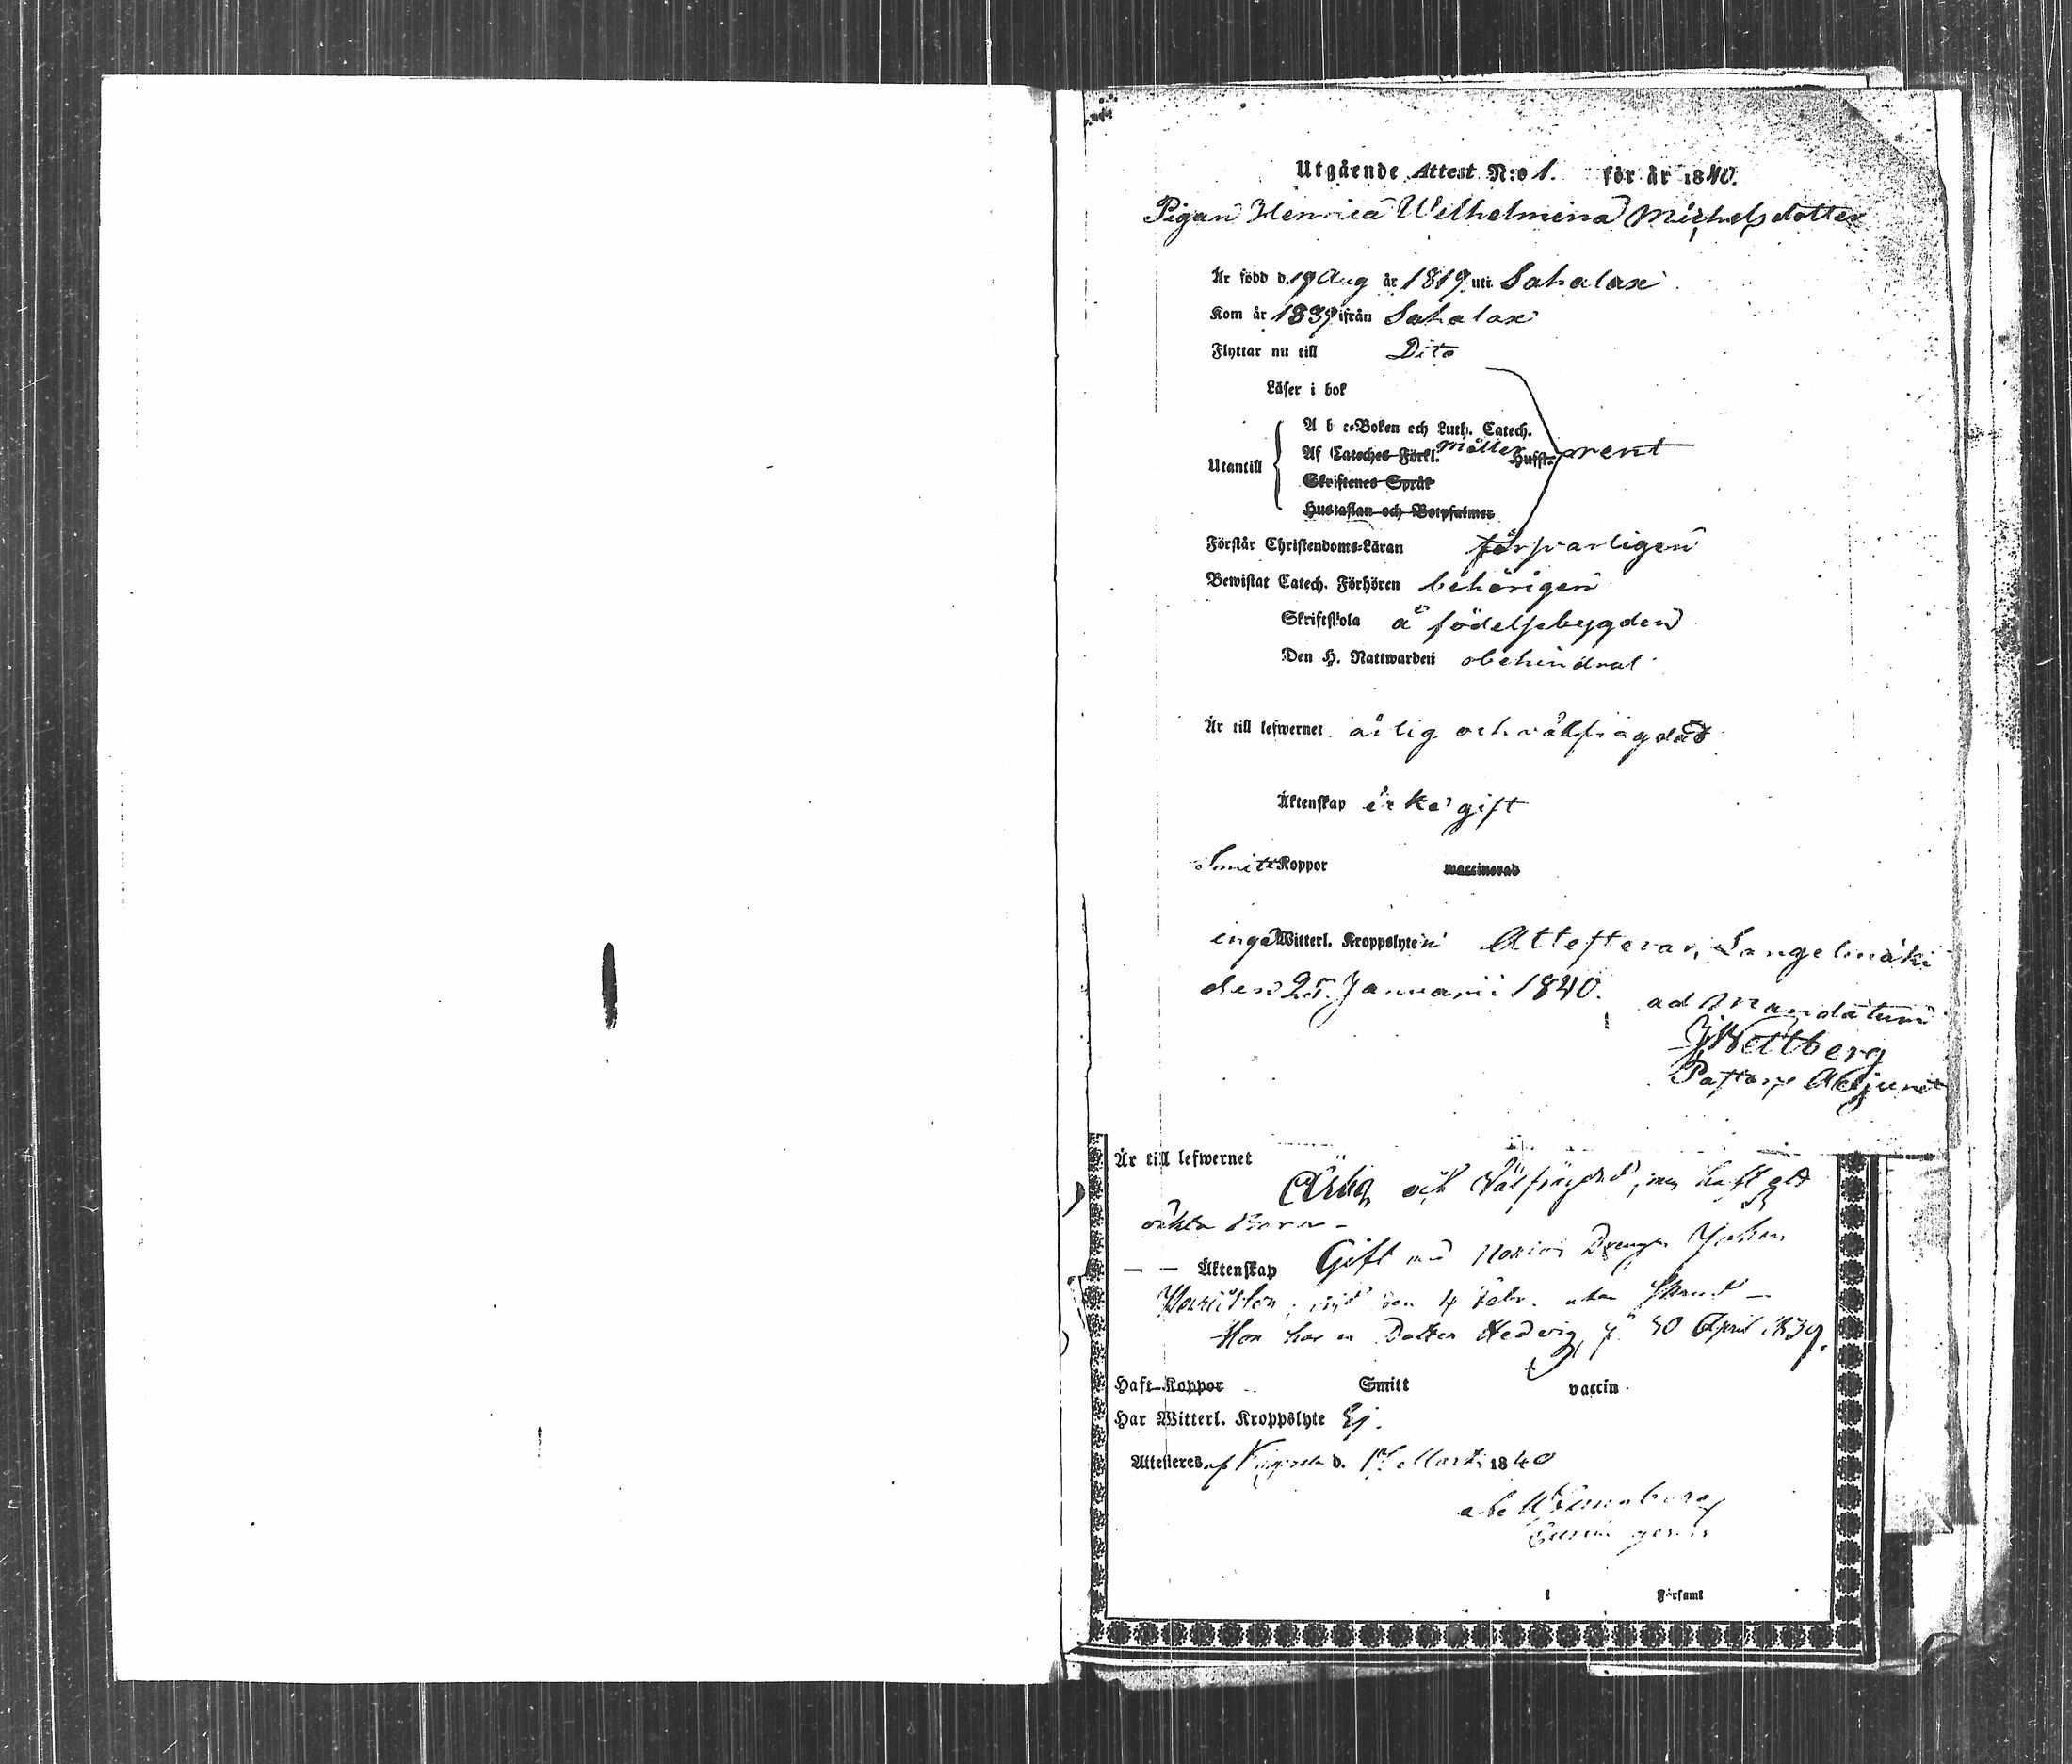 Utgående Attest N:o 1. för år 1840.
Pigan Henrica Wilhelmina Michelsdotter
Är född d. 19 Aug år 1819 uti Sahalax
Kom år 1839 ifrån Sahalax
Flyttar nu till Dito
Läser i bok
A b c-Boken och Luth. Catech.
Af Cateches Förkl. Möller Husft. rent
Utantill
Skriftenes Språk
Hustaflan och Botpsalmer
Förstår Christendoms-Läran försvarligen
Bewistat Catech. Förhören behörigen
Skriftskola å födelsebygden
Den H. Nattwarden obehindrat
Är till lefwernet ärlig och välfrägdad
Äktenskap icke gift
Smitt Koppor waccinerad
inga Witterl. Kroppslyten Attesterar, Längelmäki
den 25 Januarii 1840. ad mandatum
J Wettberg
Pastors Adjunct
Är till lefwernet
Ärlig och Välfrägdad, men haft
äkta Barn –
— — Äktenskap Gift med Johan
den 4 Febr. utan
Hon har en Dotter Hedvig, f. 30 April 1839.
Haft Koppor Smitt vaccin.
Har Witterl. Kroppslyte Ej.
Attesteras af d. 17 Martii 1840
i Församl